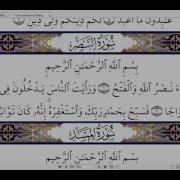 عَـٰبِدُونَ مَآ أَعْبُدُ لَكُمْ دِينُكُمْ وَلِىَ دِينِ
سُورَةُ النَّصْرِ
بِسْمِ اللَّهِ الرَّحْمَـٰنِ الرَّحِيمِ
ـآءَ نَصْرُ اللَّهِ وَالْفَتْحُ وَرَأَيْتَ النَّاسَ يَدْخُلُونَ فِى
ـوَاجًا فَسَبِّحْ بِحَمْدِ رَبِّكَ وَاسْتَغْفِرْهُ إِنَّهُۥ كَانَ تَوَّابًا
سُورَةُ الْمَسَدِ
بِسْمِ اللَّهِ الرَّحْمَـٰنِ الرَّحِيمِ